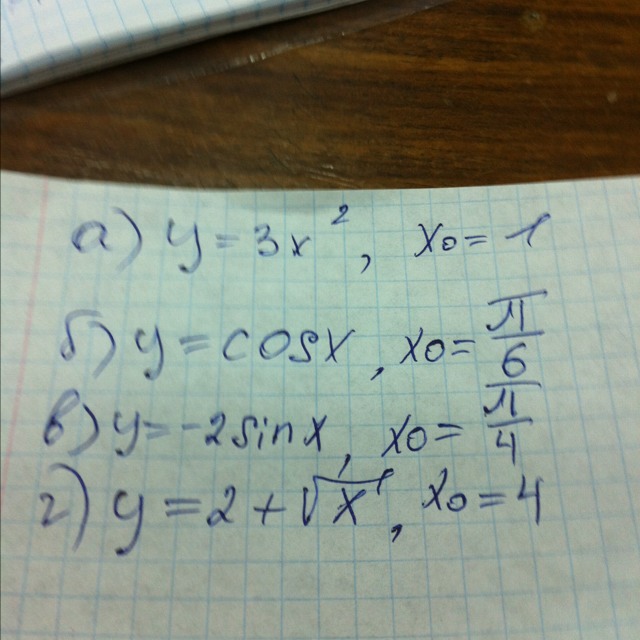 а) y = 3x², x₀ = 1
б) y = cosx, x₀ = π/6
в) y = -2sinx, x₀ = π/4
г) y = 2 + √x, x₀ = 4